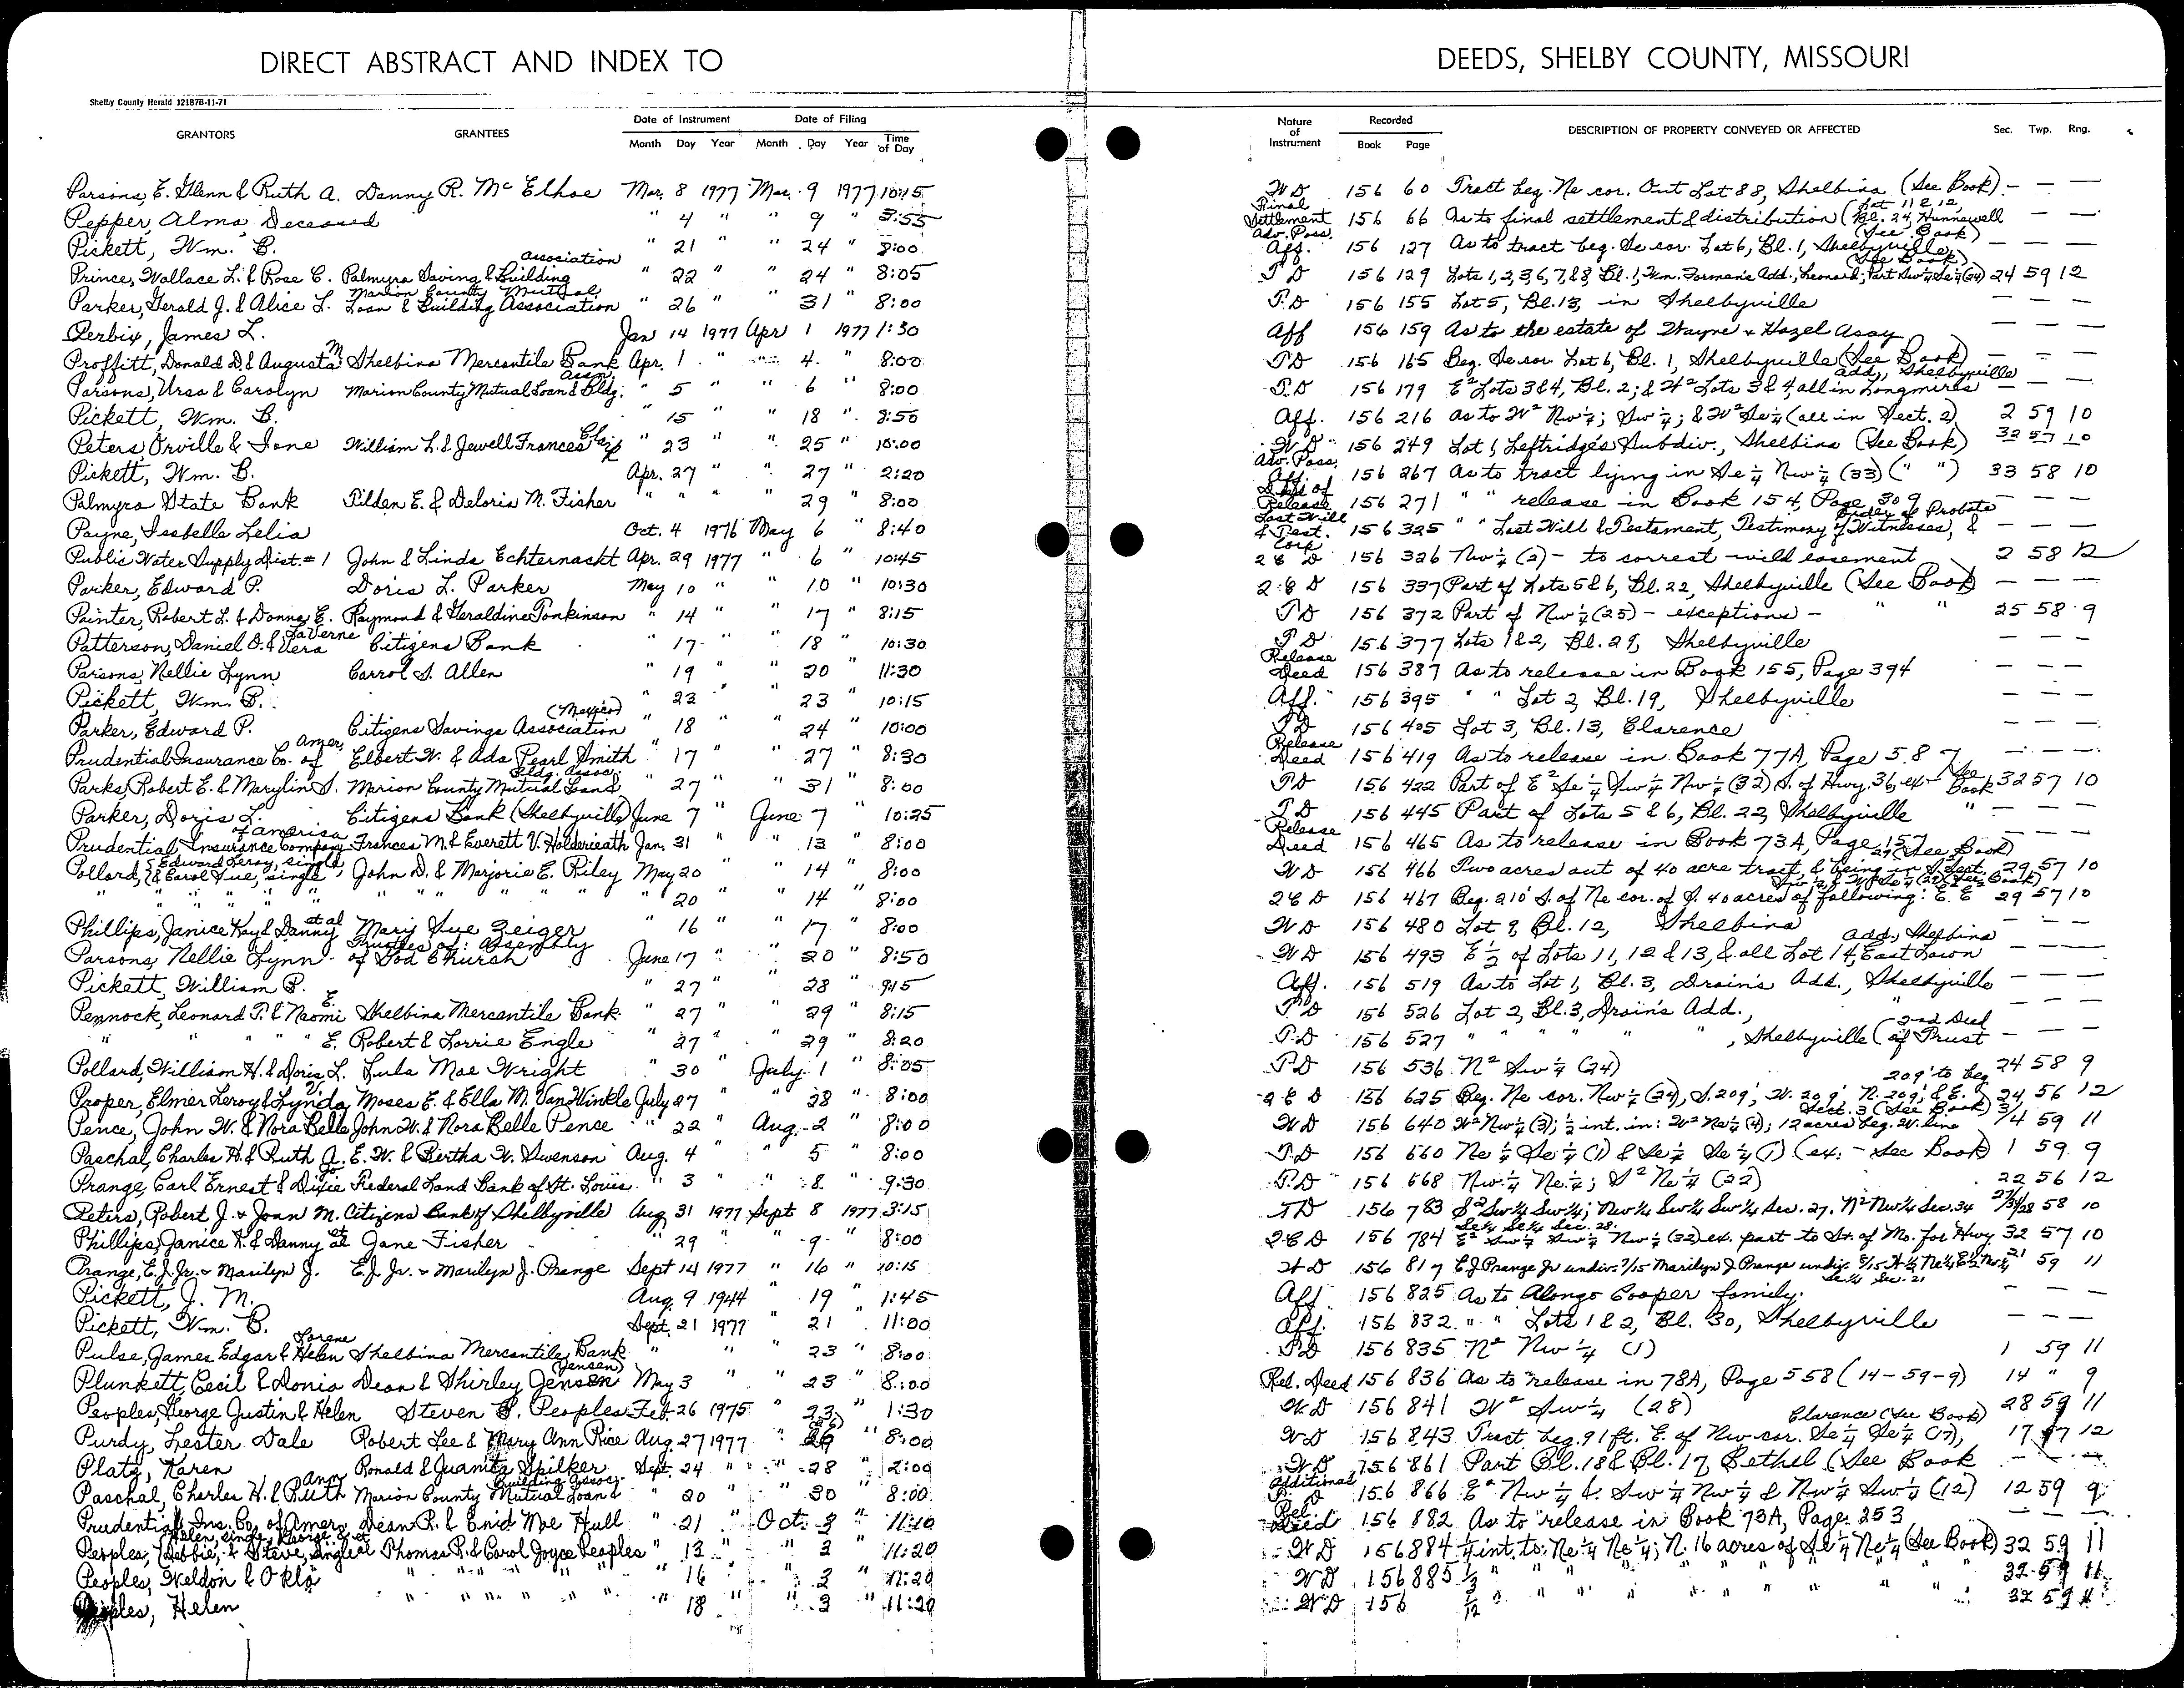 DIRECT ABSTRACT AND INDEX TO DEEDS, SHELBY COUNTY, MISSOURI
Shelby County Herald 12187B-11-71
GRANTORS GRANTEES Date of Instrument Month Day Year Date of Filing Month Day Year Time of Day Nature of Instrument Recorded Book Page DESCRIPTION OF PROPERTY CONVEYED OR AFFECTED Sec. Twp. Rng.
Parsons, E. Glenn & Ruth A. Danny R. McElhoe Mar. 8 1977 Mar. 9 1977 10:15 WD 156 60 Tract beg. Ne cor. Out Lot 88, Shelbina (See Book) - — —
Pepper, Alma, Deceased " 4 " " 9 " 3:55 Final Settlement 156 66 As to final settlement & distribution (Lot 11 & 12, Bl. 24, Hunnewell (See Book) — —
Pickett, Wm. B. " 21 " " 24 " 8:00 Adv. Poss. Aff. 156 127 As to tract beg. Se cor. Lot 6, Bl. 1, Shelbyville (See Book) — — —
Prince, Wallace L. & Rose C. Palmyra Saving & Building Association " 22 " " 24 " 8:05 TD 156 129 Lots 1, 2, 3, 6, 7, & 8, Bl. 1, Wm. Forman's Add., Leonard; Part Sw¼ Se¼ (24) 24 59 12
Parker, Gerald J. & Alice L. Marion County Mutual Loan & Building Association " 26 " " 31 " 8:00 T.D 156 155 Lot 5, Bl. 13, in Shelbyville — — —
Perbix, James L. Jan 14 1977 Apr 1 1977 1:30 Aff 156 159 As to the estate of Wayne & Hazel Asay — — —
Proffitt, Donald D. & Augusta M Shelbina Mercantile Bank Apr. 1 " " 4 " 8:00 TD 156 165 Beg. Se cor. Lot 6, Bl. 1, Shelbyville (See Book) — — —
Parsons, Ursa & Carolyn Marion County Mutual Loan & Bldg. Assn. " 5 " " 6 " 8:00 T.D 156 179 E² Lots 3&4, Bl. 2; & W² Lots 3 & 4, all in Longmires Add., Shelbyville — — —
Pickett, Wm. B. " 15 " " 18 " 8:50 Aff. 156 216 As to W² Nw¼; Sw¼; & W² Se¼ (all in Sect. 2) 2 59 10
Peters, Orville & Ione William L. & Jewell Frances " 23 " " 25 " 10:00 WD 156 249 Lot 1, Leftridge's Subdiv., Shelbina (See Book) 32 57 10
Pickett, Wm. B. Apr. 27 " " 27 " 2:20 Adv. Poss. Aff. 156 267 As to tract lying in Se¼ Nw¼ (33) (" ") 33 58 10
Palmyra State Bank Tilden E. & Deloris M. Fisher " " " " 29 " 8:00 Deed of Release 156 271 " " release in Book 154, Page 309 — — —
Payne, Isabelle Lelia Oct. 4 1976 May 6 " 8:40 Last Will & Test. 156 325 " " Last Will & Testament, Testimony of Witnesses, & Order of Probate — — —
Public Water Supply Dist. #1 John & Linda Echternacht Apr. 29 1977 " 6 " 10:45 Corr. 2CD 156 326 Nw¼ (2) - to correct will easement 2 58 12
Parker, Edward P. Doris L. Parker May 10 " " 10 " 10:30 2CD 156 337 Part of Lots 5&6, Bl. 22, Shelbyville (See Book) — — —
Painter, Robert L. & Donna E. Raymond & Geraldine Tonkinson " 14 " " 17 " 8:15 TD 156 372 Part of Nw¼ (25) - exceptions - " " 25 58 9
Patterson, Daniel O. & Vera LaVerne Citizens Bank " 17 " " 18 " 10:30 T.D 156 377 Lots 1&2, Bl. 29, Shelbyville — — —
Parsons, Nellie Lynn Carrol S. Allen " 19 " " 20 " 11:30 Release Deed 156 387 As to release in Book 155, Page 394 — — —
Pickett, Wm. B. " 23 " " 23 " 10:15 Aff. 156 395 " " Lot 2, Bl. 19, Shelbyville — — —
Parker, Edward P. Citizens Savings Association (Mexico) " 18 " " 24 " 10:00 TD 156 405 Lot 3, Bl. 13, Clarence — — —
Prudential Insurance Co. of Amer. Elbert W. & Ada Pearl Smith " 17 " " 27 " 8:30 Release Deed 156 419 As to release in Book 77A, Page 587 — — —
Parks, Robert E. & Marylin S. Marion County Mutual Loan & Bldg. Assoc. " 27 " " 31 " 8:00 TD 156 422 Part of E² Se¼ Sw¼ Nw¼ (32) S. of Hwy. 36, ex - See Book 32 57 10
Parker, Doris L. Citizens Bank (Shelbyville) June 7 " June 7 " 10:25 TD 156 445 Part of Lots 5 & 6, Bl. 22, Shelbyville " — —
Prudential Insurance Company of America Frances M. & Everett V. Holderieath Jan. 31 " " 13 " 8:00 Release Deed 156 465 As to release in Book 73A, Page 157
Pollard, {Edward Leroy, single, & Carol Sue, single, John D. & Marjorie E. Riley May 20 " " 14 " 8:00 WD 156 466 Two acres out of 40 acre tract, & being in Sect. 29 (See Book) 29 57 10
" " " " " " " " " " " 20 " 14 " 8:00 2CD 156 467 Beg. 210' S. of Ne cor. of S. 40 acres of following: 29 57 10
Phillips, Janice Kay & Danny et al Mary Sue Zeiger " 16 " " 17 " 8:00 WD 156 480 Lot 9, Bl. 12, Shelbina — — —
Parsons, Nellie Lynn Trustees of: Assembly of God Church June 17 " " 20 " 8:50 WD 156 493 E½ of Lots 11, 12 & 13, & all Lot 14, East Lawn Add., Shelbina — — —
Pickett, William B. " 27 " 28 " 9:15 Aff. 156 519 As to Lot 1, Bl. 3, Drain's Add., Shelbyville — — —
Pennock, Leonard P. & Naomi E. Shelbina Mercantile Bank " 27 " " 29 " 8:15 TD 156 526 Lot 2, Bl. 3, Drain's Add., "
" " " " E. Robert & Lorrie Engle " 27 " " 29 " 8:20 T.D 156 527 " " " " " , Shelbyville (2nd Deed of Trust — — —
Pollard, William H. & Doris L. Lula Mae Wright " 30 " July 1 " 8:05 TD 156 536 N² Sw¼ (24) 24 58 9
Proper, Elmer Leroy & Lynda V. Moses E. & Ella M. VanWinkle July 27 " " 28 " 8:00 2CD 156 625 Beg. Ne cor. Nw¼ (24), S. 209', W. 209', N. 209', & E. 209' to beg 24 56 12
Pence, John W. & Nora Belle John W. & Nora Belle Pence " 22 " Aug. 2 " 8:00 WD 156 640 W² Nw¼ (3); ½ int. in: W² Ne¼ (4); 12 acres beg. W. line Sect. 3 (See Book) 3/4 59 11
Paschal, Charles H. & Ruth A. E. W. & Bertha W. Swenson Aug. 4 " " 5 " 8:00 TD 156 660 Ne¼ Se¼ (1) & Se¼ Se¼ (1) (ex. - See Book) 1 59 9
Prange, Carl Ernest & Dixie Jo Federal Land Bank of St. Louis " 3 " " 8 " 9:30 TD 156 668 Nw¼ Ne¼; S² Ne¼ (22) 22 56 12
Peters, Robert J. & Joan M. Citizens Bank of Shelbyville Aug 31 1977 Sept 8 1977 3:15 TD 156 783 S² Sw¼ Sw¼; Nw¼ Sw¼ Sw¼ Sec. 27, N² Nw¼ Sec. 34 Se¼ Se¼ Sec. 28. 27/34/28 58 10
Phillips, Janice K. & Danny et al Jane Fisher " 29 " " 9 " 8:00 2CD 156 784 E² Sw¼ Sw¼ Nw¼ (32) ex. part to St. of Mo. for Hwy 32 57 10
Prange, E.J. Jr. & Marilyn J. E.J. Jr. & Marilyn J. Prange Sept 14 1977 " 16 " 10:15 WD 156 817 E.J. Prange Jr undiv. 7/15 Marilyn J Prange undiv. 8/15 W½ Ne¼, E½ Nw¼ Se¼ Sec. 21 21 59 11
Pickett, J. M. Aug. 9 1944 " 19 " 1:45 Aff 156 825 As to Alonzo Cooper family. — — —
Pickett, Wm. B. Sept. 21 1977 " 21 " 11:00 Aff. 156 832 " " Lots 1 & 2, Bl. 30, Shelbyville — — —
Pulse, James Edgar & Helen Lorene Shelbina Mercantile Bank " " " 23 " 8:00 TD 156 835 N² Nw¼ (1) 1 59 11
Plunkett, Cecil & Donia Dean & Shirley Jensen (Jensen) May 3 " " 23 " 8:00 Rel. Deed 156 836 As to release in 78A, Page 558 (14-59-9) 14 " 9
Peoples, George Justin & Helen Steven B. Peoples Feb. 26 1975 " 23 " 1:30 WD 156 841 W² Sw¼ (28) 28 59 11
Purdy, Lester Dale Robert Lee & Mary Ann Rice Aug. 27 1977 " 26 (26) " 8:00 WD 156 843 Tract beg. 91 ft. E. of Nw cor. Se¼ Se¼ (17), Clarence (See Book) 17 57 12
Platz, Karen Ronald & Juanita Spilker Sept. 24 " " 28 " 2:00 WD 156 861 Part Bl. 18 & Bl. 17, Bethel (See Book — — —
Paschal, Charles H. & Ruth Ann Marion County Mutual Loan & Building Assoc. " 20 " 30 " 8:00 Additional T.D 156 866 E² Nw¼ & Sw¼ Nw¼ & Nw¼ Sw¼ (12) 12 59 9
Prudential Ins. Co. of Amer. Dean R. & Enid Moe Hull " 21 " Oct. 3 " 11:10 Rel. Deed 156 882 As to release in Book 73A, Page 253 — — —
Peoples, Debbie, & Steve, single Helen, single, George & et al Thomas R. & Carol Joyce Peoples " 13 " " 3 " 11:20 WD 156 884 ¼ int. to: Ne¼ Ne¼; N. 16 acres of Se¼ Ne¼ (See Book) 32 59 11
Peoples, Weldon & Okla " " " " " " 16 " " 3 " 11:20 WD 156 885 ⅓ " " " " " " " " 32 59 11
Peoples, Helen " " " " " " 18 " " 3 " 11:20 WD 156 1/12 " " " " " " " " 32 59 11